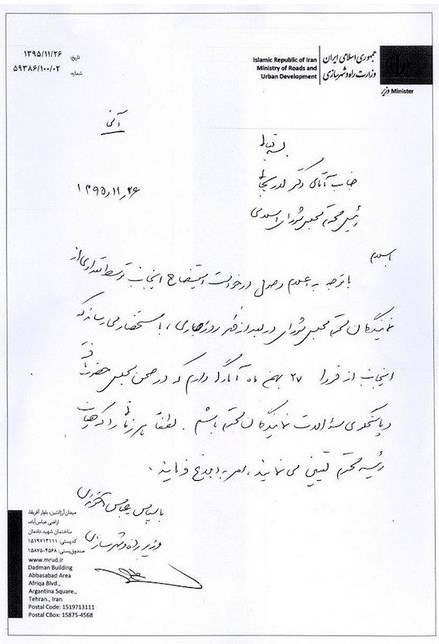 ۱۳۹۵/۱۱/۲۶
تاریخ:
۵۹۳۸۶/۱۰۰/۰۲
شماره:
Islamic Republic of Iran
Ministry of Roads and
Urban Development
جمهوری اسلامی ایران
وزارت راه و شهرسازی
وزیر Minister
آنی
بسمه تعالی
جناب آقای دکتر لاریجانی
۱۳۹۵,۱۱,۲۶
رئیس محترم مجلس شورای اسلامی
با سلام
با توجه به اعلام وصول درخواست استیضاح اینجانب توسط تعدادی از
نمایندگان محترم مجلس شورای در بعدازظهر روز جاری، به استحضار می‌رساند که
اینجانب از فردا ۲۷ بهمن ماه آمادگی دارم که در صحن مجلس حضور یافته
و پاسخگوی سؤالات نمایندگان محترم باشم. لطفا هر زمانی را که هیأت
رئیسه محترم تعیین می‌نمایند، امر به ابلاغ فرمایند.
با سپاس عباس آخوندی
وزیر راه و شهرسازی
میدان آرژانتین، بلوار آفریقا
اراضی عباس‌آباد،
ساختمان شهید دادمان
کدپستی: ۱۵۱۹۷۱۳۱۱۱
صندوق‌پستی: ۴۵۶۸-۱۵۸۷۵
www.mrud.ir
Dadman Building
Abbasabad Area
Afriqa Blvd.,
Argantina Square,,
Tehran., Iran.
Postal Code: 1519713111
Postal CBox: 15875-4568